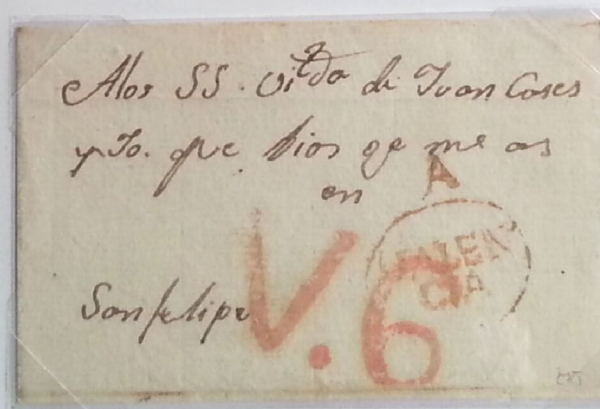 Alos SS. vi.da de Juan Coses
y Jo. que Dios ge me as
en
A
VALEN
CIA
Sanfelipe
V.6